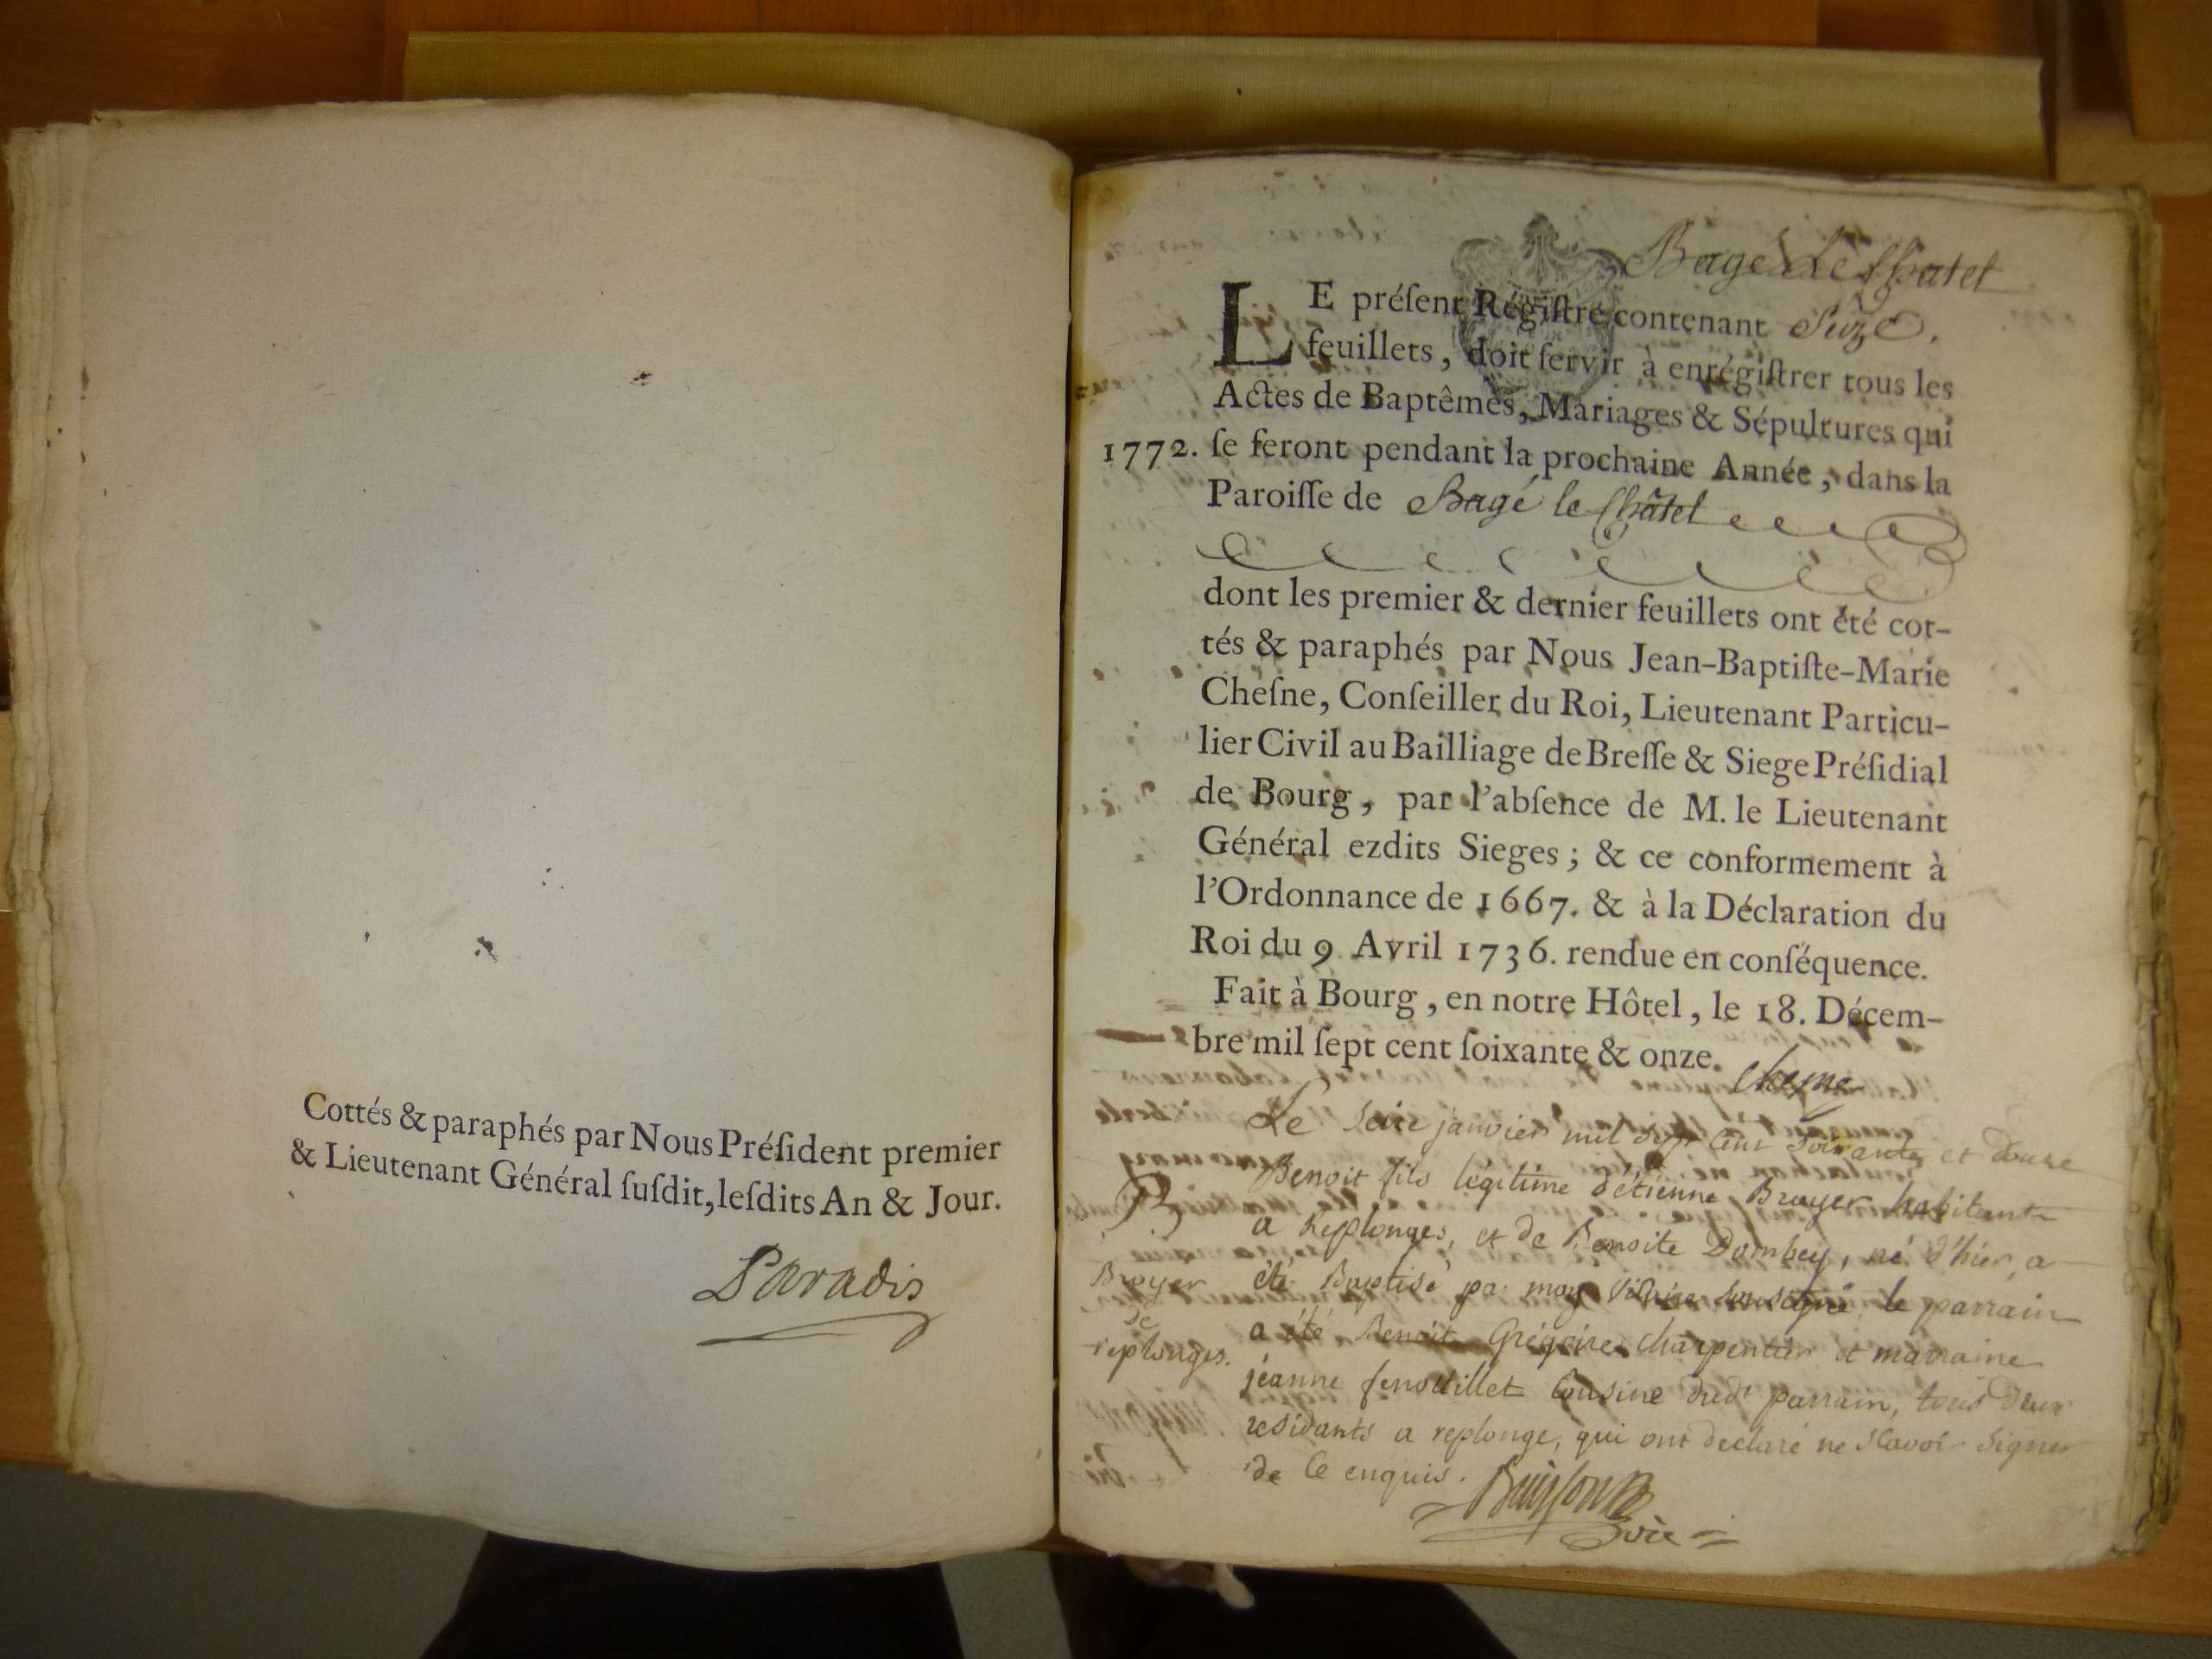 Cottés & paraphés par Nous Préſident premier
& Lieutenant Général ſuſdit, leſdits An & Jour.
Paradis
Bagé Le Chatel
LE préſent Régiſtre contenant Seize.
feuillets, doit ſervir à enrégiſtrer tous les
Actes de Baptêmes, Mariages & Sépultures qui
1772. ſe feront pendant la prochaine Année, dans la
Paroiſſe de Bagé le Châtel
dont les premier & dernier feuillets ont été cot-
tés & paraphés par Nous Jean-Baptiſte-Marie
Cheſne, Conſeiller du Roi, Lieutenant Particu-
lier Civil au Bailliage de Breſſe & Siege Préſidial
de Bourg, par l'abſence de M. le Lieutenant
Général ezdits Sieges ; & ce conformement à
l'Ordonnance de 1667. & à la Déclaration du
Roi du 9 Avril 1736. rendue en conſéquence.
Fait à Bourg, en notre Hôtel, le 18. Décem-
bre mil ſept cent ſoixante & onze.
Chesne
Le Seize janvier mil sept cent soixante et douze
Benoit fils légitime d'étienne Broyer habitant
B
a Replonges, et de Benoite Dombey, né d'hier, a
Broyer
de
replonges.
été Baptisé par moy Vicaire soussigné le parrain
a été Benoit Grégoire charpentier et marraine
jeanne fenouillet Cousine dudt parrain, tous deux
residants a replonge, qui ont declaré ne scavoir signer
de ce enquis.
Buisson
vire